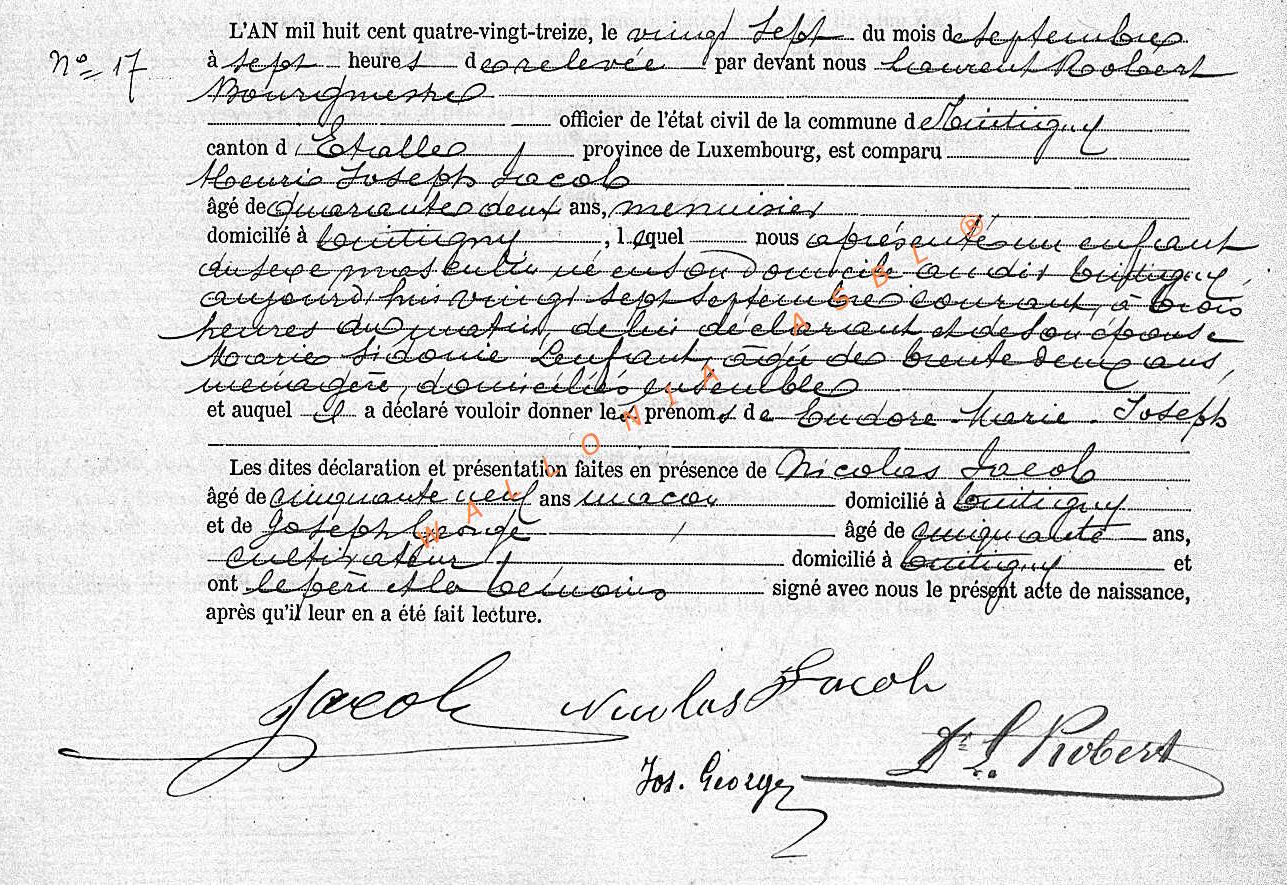 L'AN mil huit cent quatre-vingt-treize, le vingt Sept du mois de Septembre
N° 17
à sept heures de relevée par devant nous Laurent Robert
Bourgmestre
officier de l'état civil de la commune de Tintigny
canton d'Etalle, province de Luxembourg, est comparu
Henri Joseph Jacob
âgé de quarante deux ans, menuisier
domicilié à Tintigny, lequel nous a présenté un enfant
du sexe masculin né en son domicile au dit Tintigny,
aujourd'hui vingt sept Septembre courant, à trois
heures du matin, de lui déclarant et de son épouse
Marie Sidonie Lenfant, âgée de trente deux ans,
ménagère, domiciliés ensemble
et auquel il a déclaré vouloir donner les prénoms de Eudore Marie Joseph
Les dites déclaration et présentation faites en présence de Nicolas Jacob
âgé de cinquante neuf ans maçon domicilié à Tintigny
et de Joseph George âgé de cinquante ans,
cultivateur domicilié à Tintigny et
ont le père et les témoins signé avec nous le présent acte de naissance,
après qu'il leur en a été fait lecture.
WALLONIA ASBL ®
Jacob Nicolas Jacob
Dr L. Robert
Jos. George